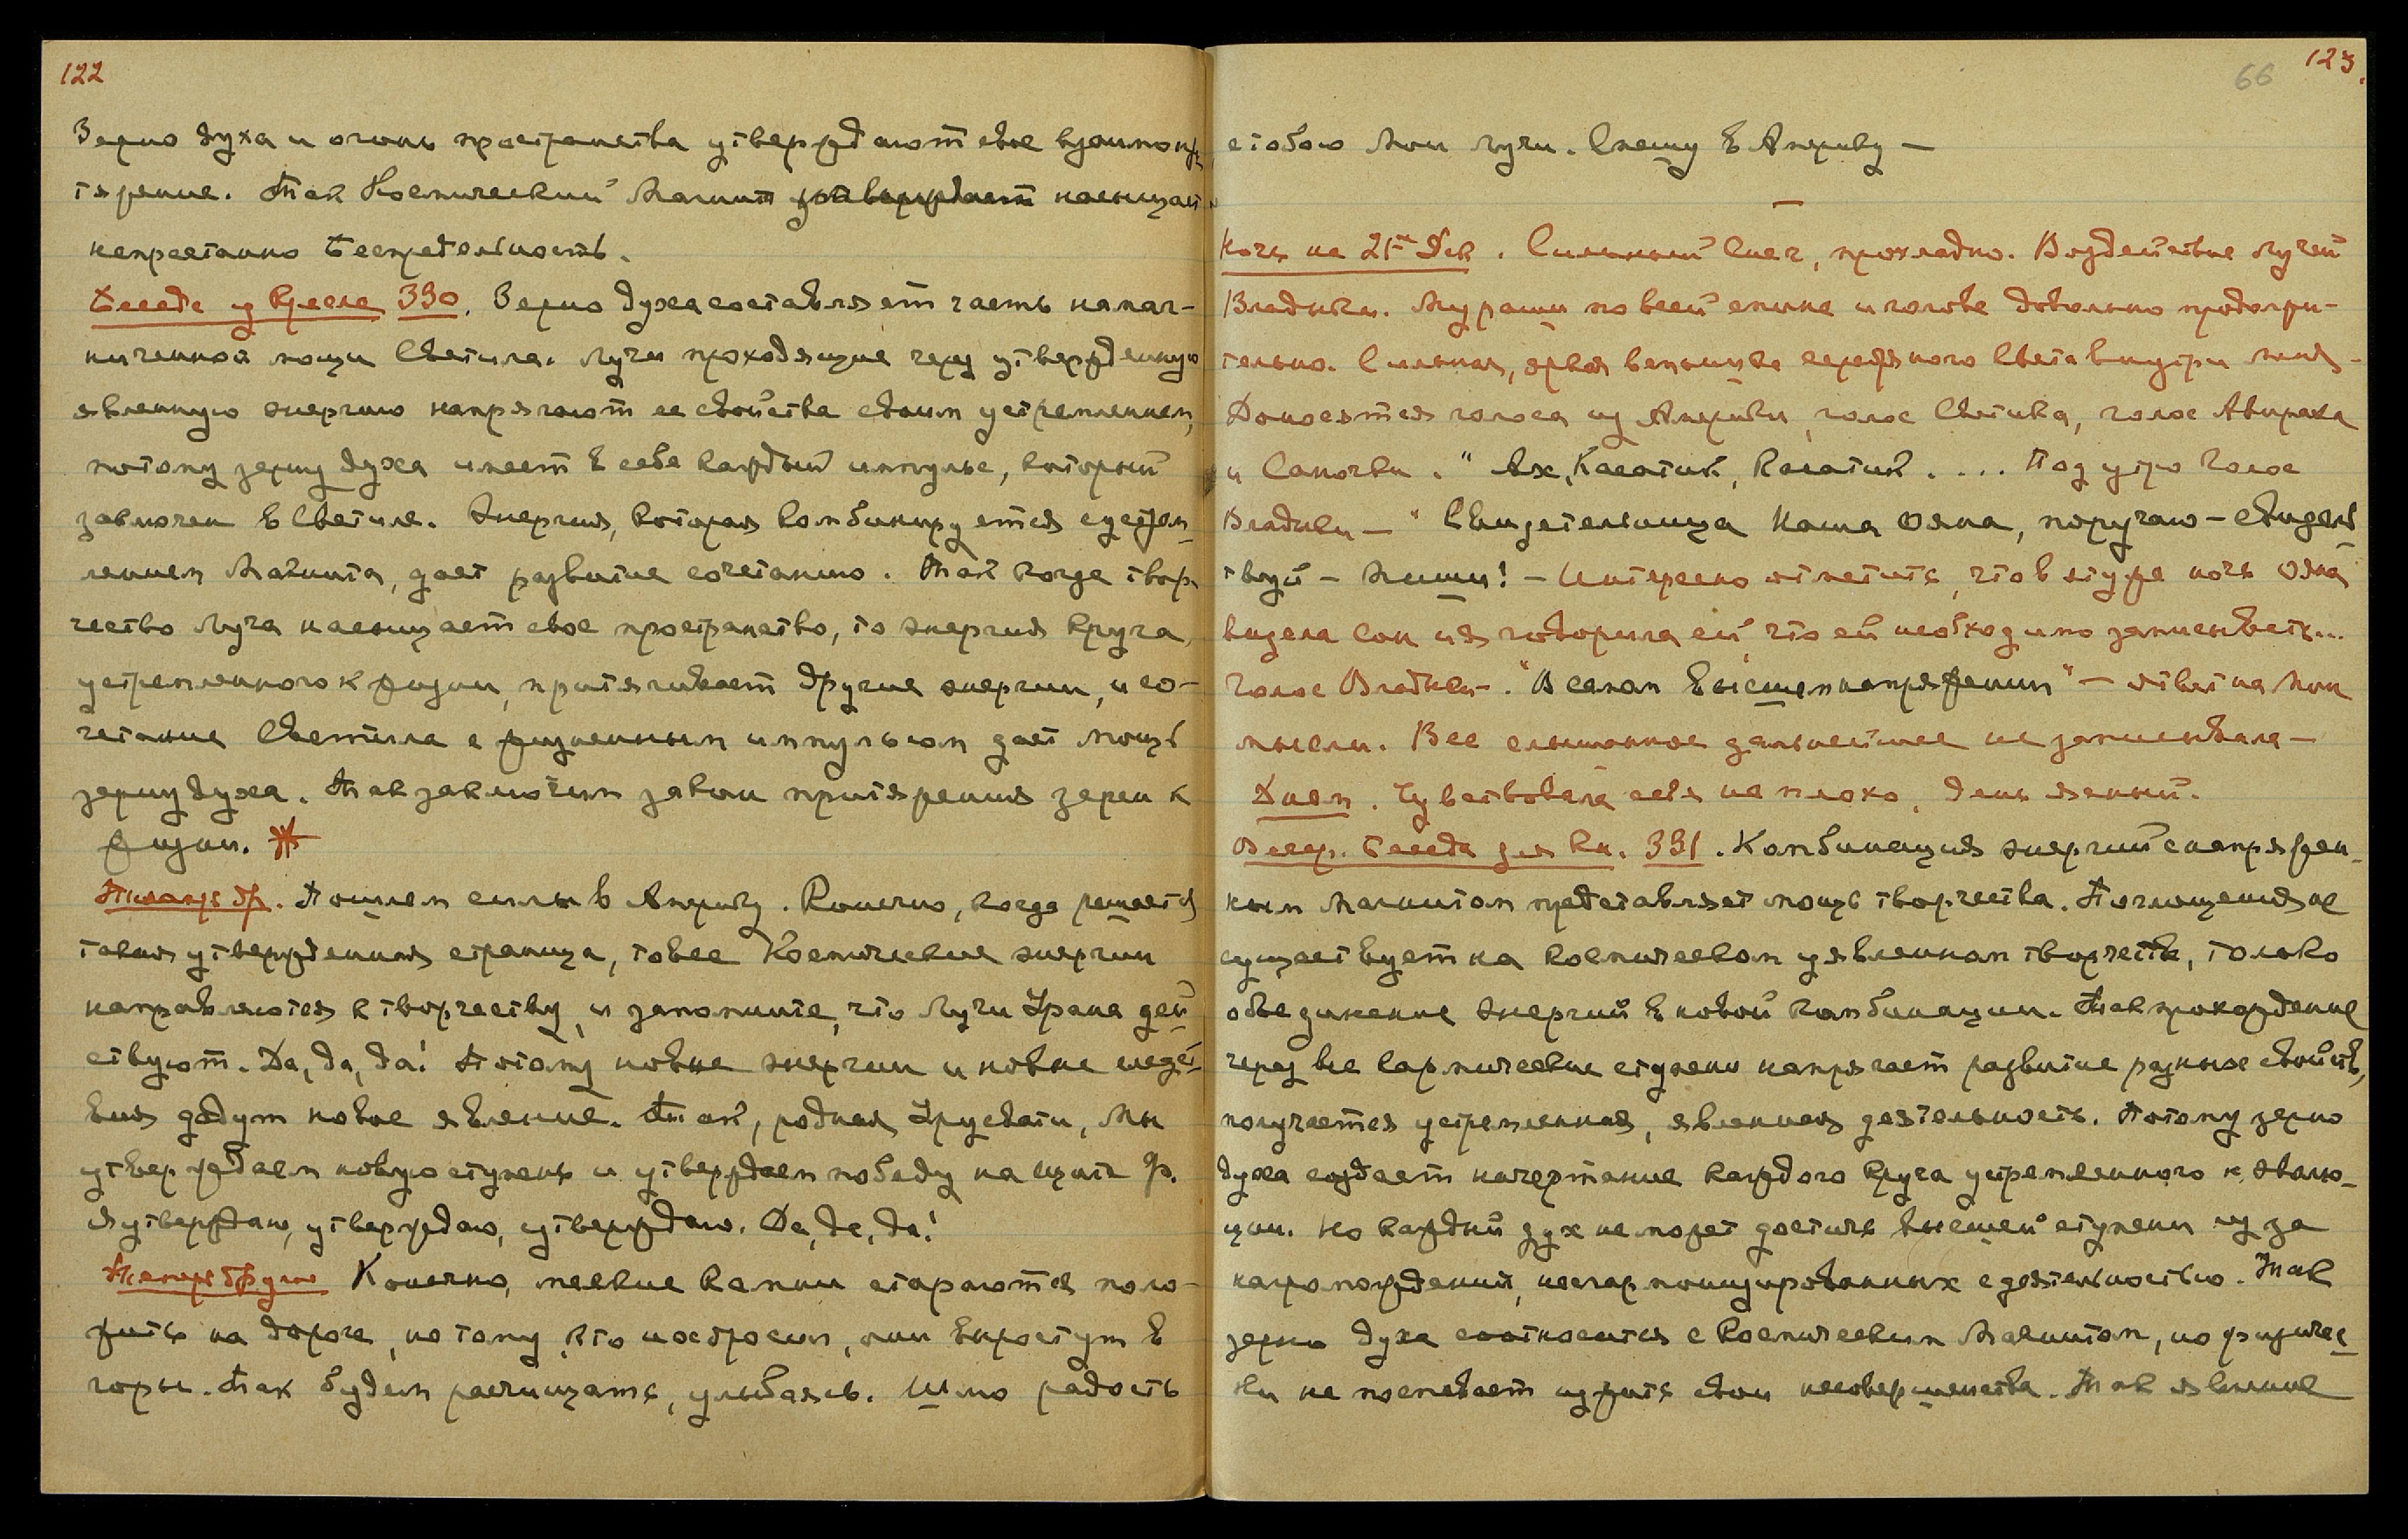 122
Зерно духа и огонь пространства утверждают свое взаимопри
тяжение. Так Космический Магнит утверждает насыщает
непрестанно Беспредельность.
Беседа из кресла 390. Зерно духа составляет часть намаг-
ниченной мощи Светила. Лучи проходящие через утвержденную
явленную энергию напрягают ее свойства своим устремлением,
потому зерну духа имеет в себе каждый импульс, который
заключен в Светиле. Энергия, которая комбинируется с устрем-
лением Магнита, дает развитие сочетанию. Так когда твор-
чество Луча насыщает свое пространство, то энергия круга,
устремленного к жизни, притягивает другие энергии, и со-
четание Светила с жизненным импульсом дает мощь
зерну духа. Так заключим закон притяжения зерен к
жизни.
Пошлем силы в Америку. Конечно, когда решается
такая утвержденная страница, то все Космические энергии
направляются к творчеству, и запомните, что Лучи Урана дей-
ствуют. Да, да, да! Потому новые энергии и новые следст-
вия дадут новое явление. Так, родная Урусвати, Мы
утверждаем новую ступень и утверждаем победу на щите Ф.
Я утверждаю, утверждаю, утверждаю. Да, да, да!
Конечно, мелкие камни стараются поло-
жить на дороге, но тому, кто их бросил, они вырастут в
горы. Так будем расчищать, улыбаясь. Шлю радость
66 123.
с тобою Мои лучи. Спешу в Америку —
Ночь на 21е Дек. Сильный снег, прохладно. Воздействие лучей
Владыки. Мураши по всей спине и голове довольно продолжи-
тельно. Сильная, яркая вспышка серебряного света внутри меня —
Доносятся голоса из Америки, голос Светика, голос Авираха
и Саночки. "Ах, Касатик, Касатик.... Под утро Голос
Владыки — "Свидетельница Наша Ояна, поручаю — Свидель-
твуй — Пиши! — Интересно отметить, что в эту же ночь Ояна
видела сон и я говорила ей, что ей необходимо записывать...
Голос Владыки — "В самом высшем напряжении" — ответ на мои
мысли. Все слышанное дальнейшее не записывала —
Днем. Чувствовала себя не плохо, день ясный.
Вечер. Беседа для Кн. 391. Комбинация энергий с напряжен-
ным Магнитом представляет мощь творчества. Поглощения не
существует на космическом уявленном творчестве, только
объединение энергий в новой комбинации. Так прохождение
через все кармические ступени напрягает развитие разных свойств,
получается устремленная, явленная деятельность. Потому зерно
духа создает начертание каждого круга устремленного к эволю-
ции. Но каждый дух не может достичь высшей ступени из за
нагромождений, несгармонизированных с деятельностью. Так
зерно духа соотносится с Космическим Магнитом, но физичес-
ки не поспевает изжить свои несовершенства. Так явление